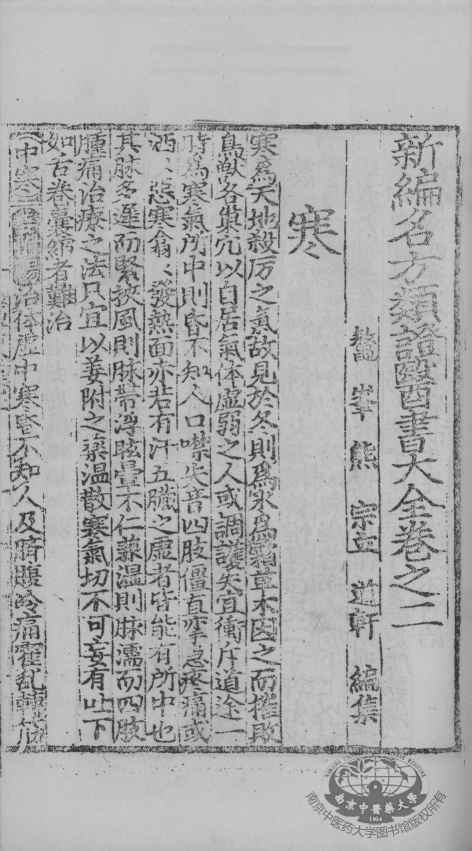 新編名方類證醫書大全卷之二
鼇峯熊宗立道軒編集
寒
寒為天地殺厉之氣故見於冬則為氷為霜草木因之而摧敗
鳥獸各巢穴以自居氣体虛弱之人或調護失宜衝斥道途一
時為寒氣所中則昏不知人口噤失音四肢僵直攣急疼痛或
洒〻惡寒翕〻發熱面赤若有汗五臟之虛者皆能有所中也
其脉多遲而緊挾風則脉帶浮眩暈不仁兼濕則脉濡而四肢
腫痛治療之法只宜以姜附之藥温散寒氣切不可妄有吐下
如舌卷囊縮者難治
中寒 治体虛中寒昏不知人及臍腹冷痛霍乱轉筋
南京中醫藥大學
1954
南京中医药大学图书馆版权所有